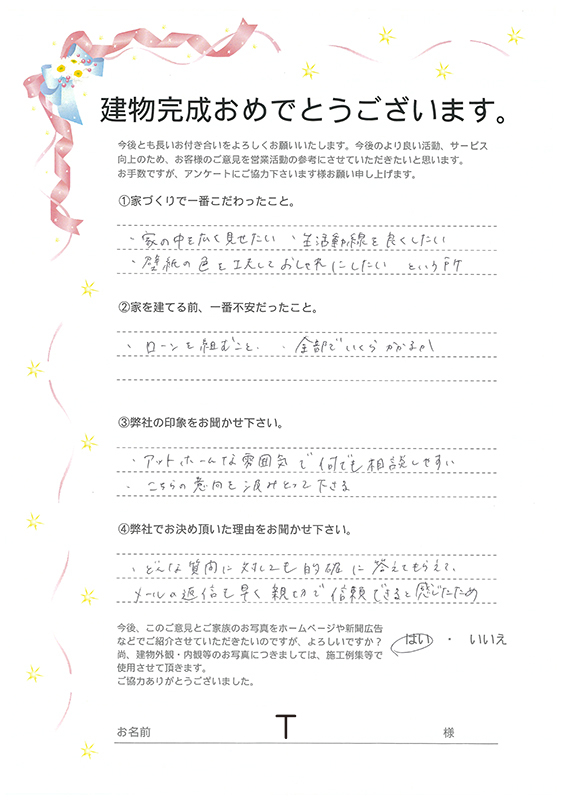 建物完成おめでとうございます。
今後とも長いお付き合いをよろしくお願いいたします。今後のより良い活動、サービス
向上のため、お客様のご意見を営業活動の参考にさせていただきたいと思います。
お手数ですが、アンケートにご協力下さいます様お願い申し上げます。
①家づくりで一番こだわったこと。
・家の中を広く見せたい ・生活動線を良くしたい
・壁紙の色を工夫しておしゃれにしたい という所
②家を建てる前、一番不安だったこと。
・ローンを組むこと. ・全部でいくらかかるか
③弊社の印象をお聞かせ下さい。
・アットホームな雰囲気で何でも相談しやすい
・こちらの意向を汲みとって下さる
④弊社でお決め頂いた理由をお聞かせ下さい。
・どんな質問に対しても的確に答えてもらえて、
メールの返信も早く親切で信頼できると感じたため
今後、このご意見とご家族のお写真をホームページや新聞広告
などでご紹介させていただきたいのですが、よろしいですか？ はい ・ いいえ
尚、建物外観・内観等のお写真につきましては、施工例集等で
使用させて頂きます。
ご協力ありがとうございました。
お名前 T 様